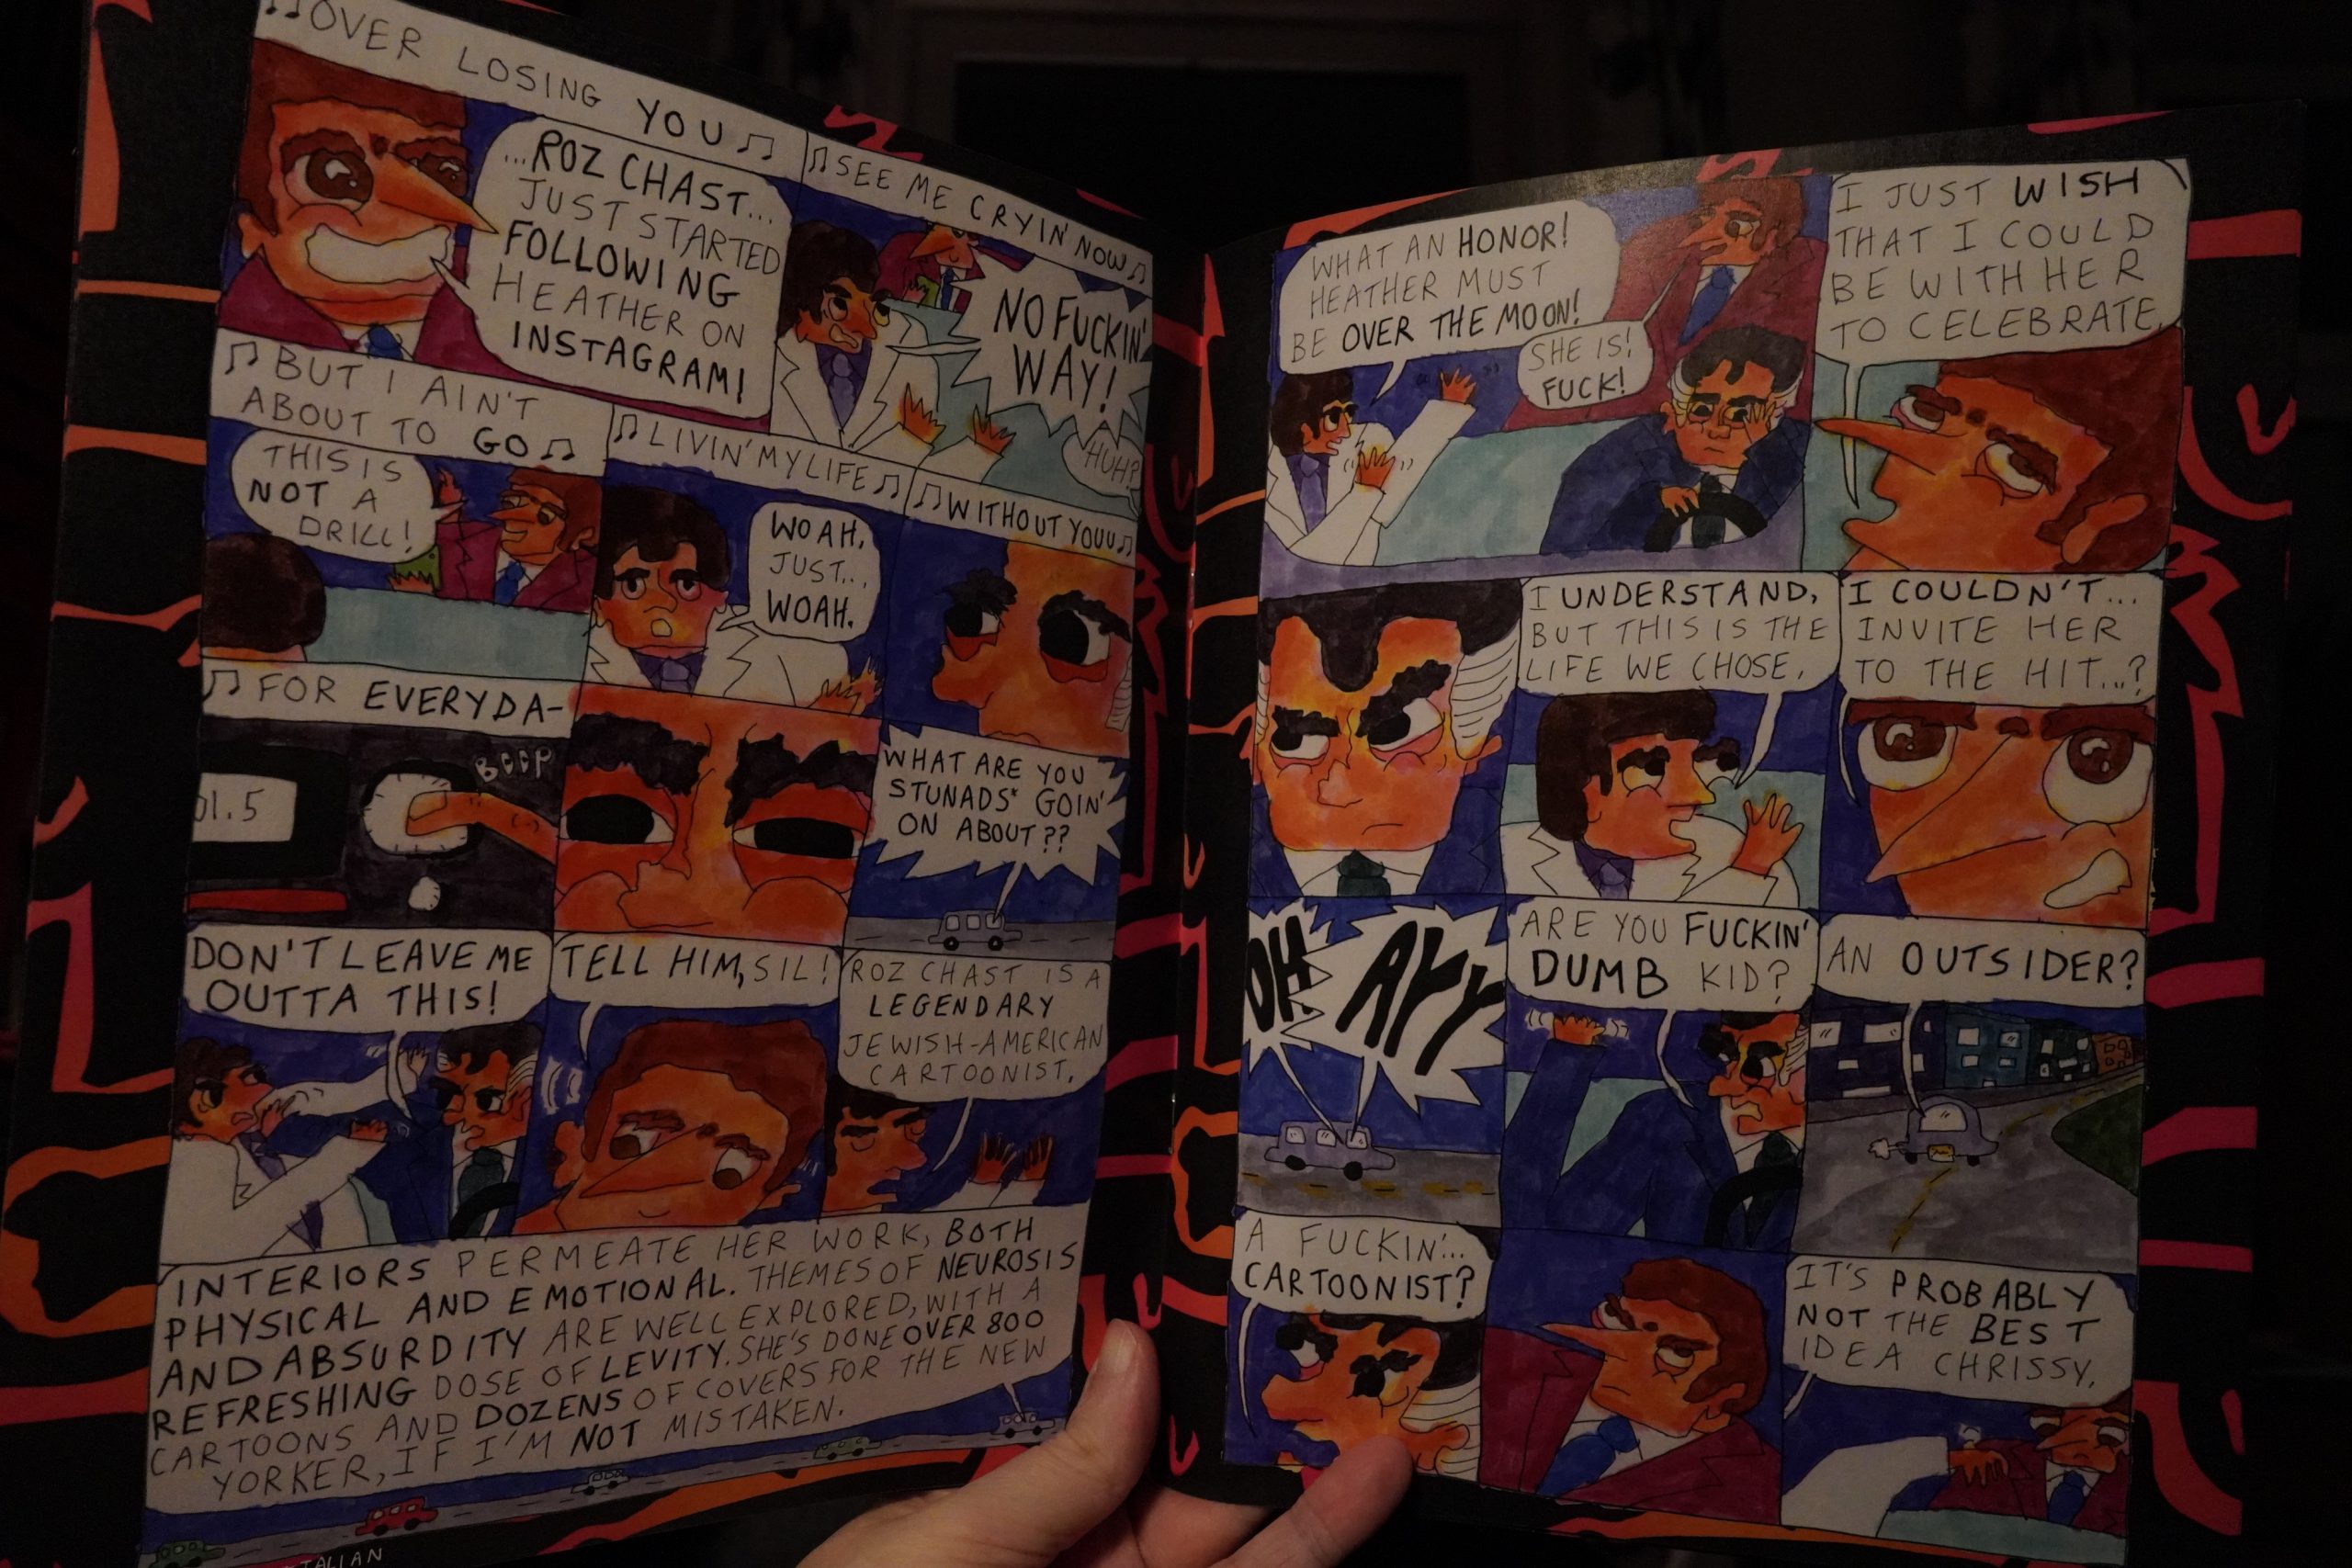 ♫ OVER LOSING YOU ♫
...ROZ CHAST...
JUST STARTED
FOLLOWING
HEATHER ON
INSTAGRAM!
♫ SEE ME CRYIN' NOW ♫
NO FUCKIN'
WAY!
HUH?
♫ BUT I AIN'T
ABOUT TO GO ♫
THIS IS
NOT A
DRILL!
♫ LIVIN' MY LIFE ♫
WOAH,
JUST...
WOAH.
♫ WITHOUT YOUU ♫
♫ FOR EVERYDA-
01.5
BOOP
WHAT ARE YOU
STUNADS* GOIN'
ON ABOUT??
DON'T LEAVE ME
OUTTA THIS!
TELL HIM, SIL!
ROZ CHAST IS A
LEGENDARY
JEWISH-AMERICAN
CARTOONIST.
INTERIORS PERMEATE HER WORK, BOTH
PHYSICAL AND EMOTIONAL. THEMES OF NEUROSIS
AND ABSURDITY ARE WELL EXPLORED, WITH A
REFRESHING DOSE OF LEVITY. SHE'S DONE OVER 800
CARTOONS AND DOZENS OF COVERS FOR THE NEW
YORKER, IF I'M NOT MISTAKEN.
WHAT AN HONOR!
HEATHER MUST
BE OVER THE MOON!
SHE IS!
FUCK!
I JUST WISH
THAT I COULD
BE WITH HER
TO CELEBRATE.
I UNDERSTAND,
BUT THIS IS THE
LIFE WE CHOSE.
I COULDN'T...
INVITE HER
TO THE HIT...?
OH
AYY
ARE YOU FUCKIN'
DUMB KID?
AN OUTSIDER?
A FUCKIN'...
CARTOONIST?
IT'S PROBABLY
NOT THE BEST
IDEA CHRISSY.